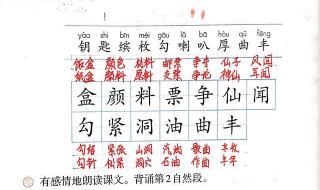 yào shi bīn méi gōu lǎ bā hòu qǔ fēng
钥 匙 缤 枚 勾 喇 叭 厚 曲 丰
纸盒 颜色 材料 邮票 争夺 仙子 风闻
饭盒 颜料 原料 支票 争吵 神仙 耳闻
盒 颜 料 票 争 仙 闻
勾 紧 洞 油 曲 丰
勾结 紧张 山洞 汽油 歌曲 丰收
勾针 洞穴 石油 作曲 丰年
有感情地朗读课文。背诵第2自然段。